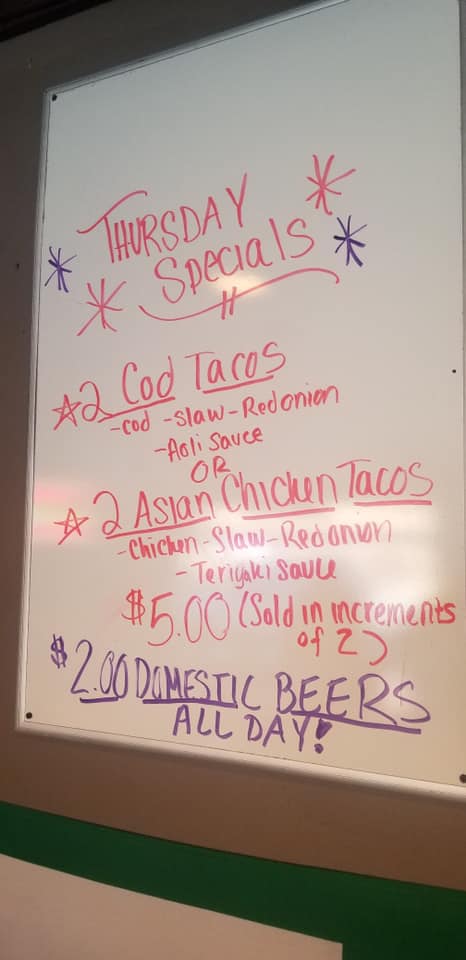 THURSDAY
Specials
2 Cod Tacos
-cod -Slaw-Red onion
-Aoli Sauce
OR
2 Asian Chicken Tacos
-Chicken-Slaw-Red onion
-Teriyaki sauce
$5.00 (Sold in increments
of 2)
$2.00 DOMESTIC BEERS
ALL DAY!